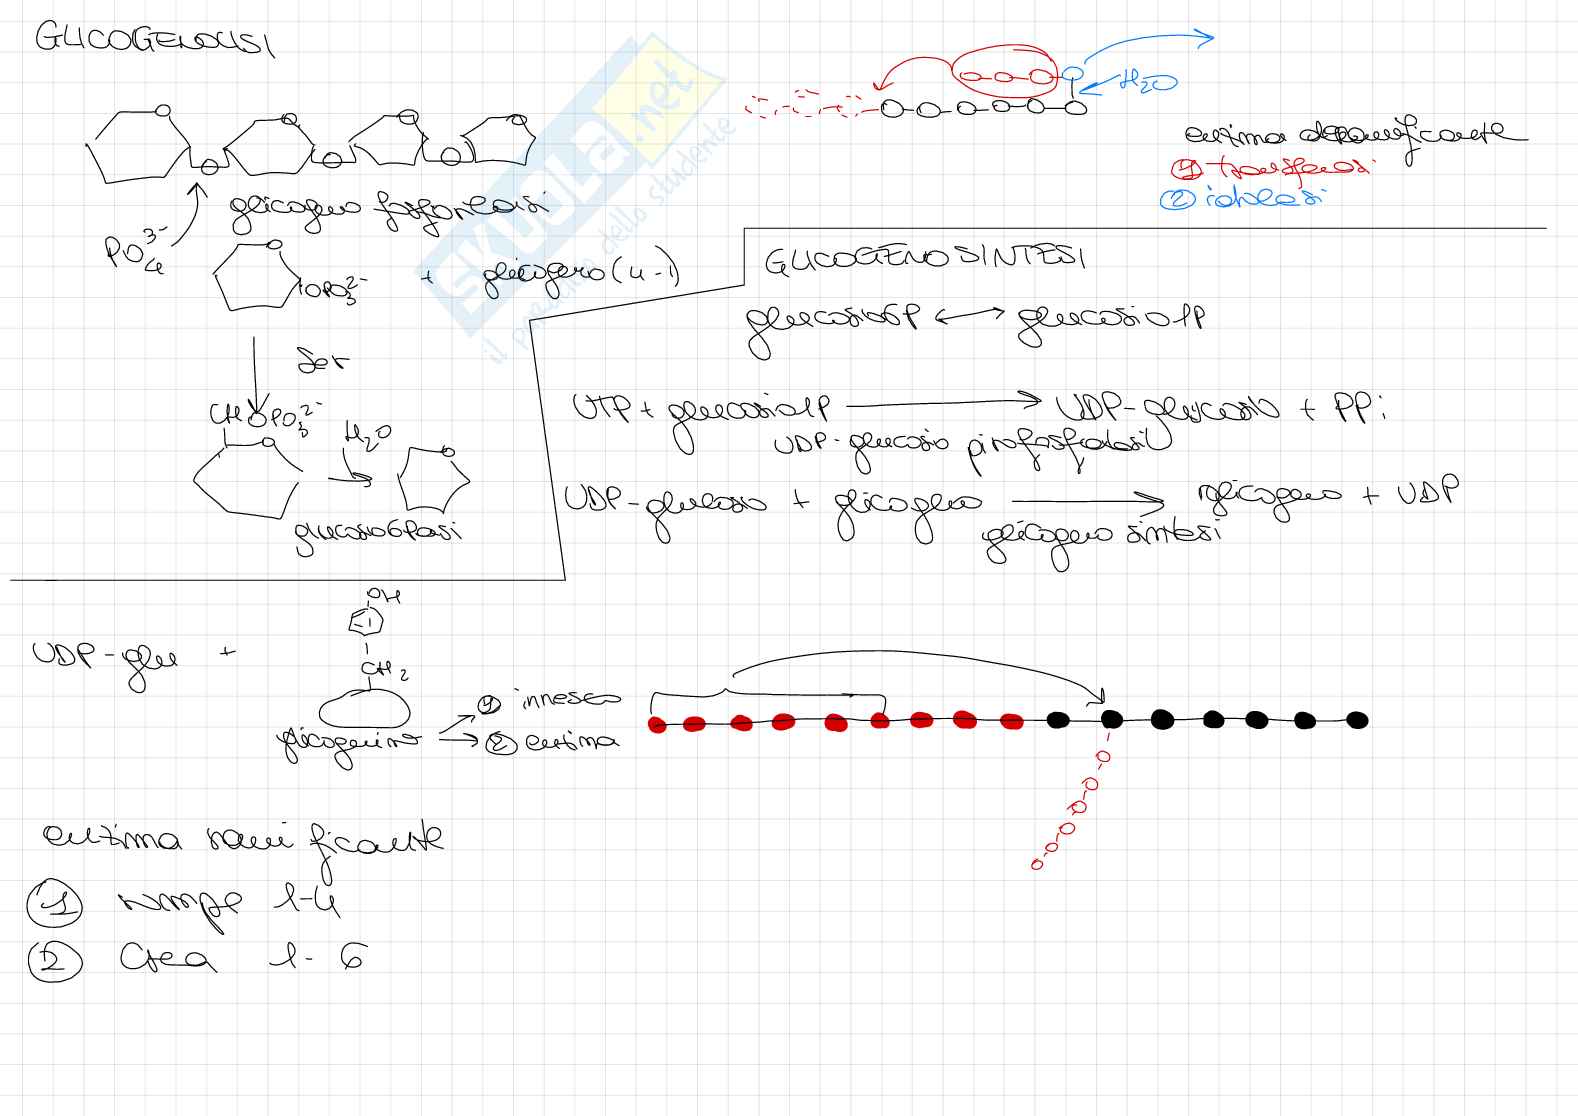 GLICOGENOLISI
PO₄³⁻
glicogeno fosforilasi
OPO₃²⁻ + glicogeno (n-1)
Ser
CHOPO₃²⁻
H₂O
glucosio6Pasi
H₂O
enzima deramificante
① transferasi
② idrolasi
GLICOGENOSINTESI
glucosio6P ↔ glucosio1P
UTP + glucosio1P → UDP-glucosio + PPi
UDP-glucosio pirofosforilasi
UDP-glucosio + glicogeno → glicogeno + UDP
glicogeno sintasi
UDP-glu +
OH
CH₂
glicogenina
① innesco
② enzima
enzima ramificante
① rompe 1-4
② crea 1-6
SKUOLA.net
il portale dello studente